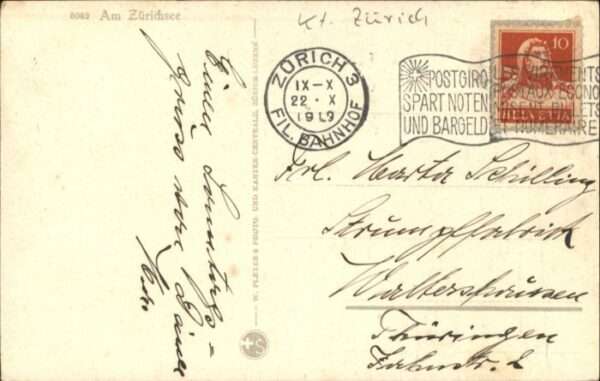 6063 Am Zürichsee
Kt. Zürich
ZÜRICH 3
IX-X
22 · X
FIL. BAHNHOF
POSTGIRO
SPART NOTEN
UND BARGELD
ET NUMERAIRE
10
HELVETIA
Einen Sonntags-
gruss von Deiner
Frl. Marta Schilling
Strumpffabrik
Waltershausen
Thüringen
Bahnstr. 2
W. PLEYER'S PHOTO- UND KARTEN-CENTRALE, ZÜRICH-LUZERN